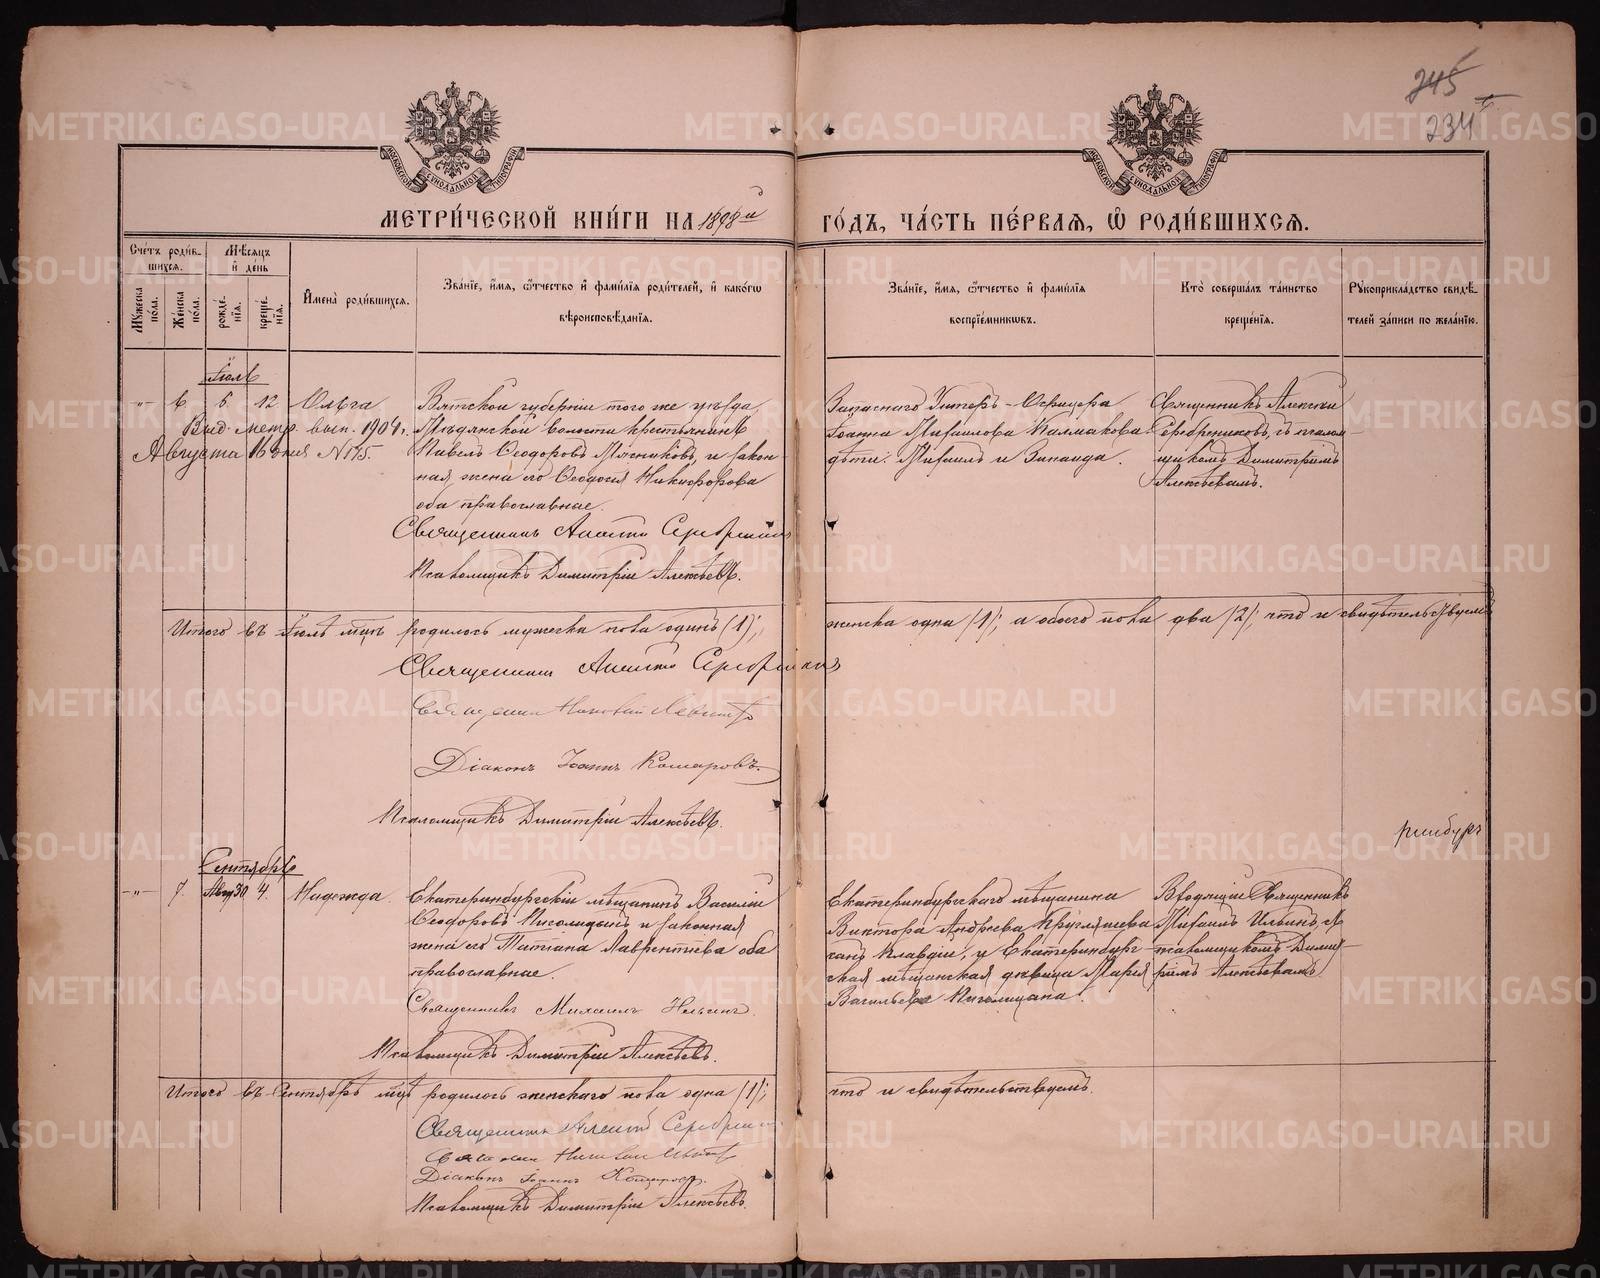 245
234
МОСКОВСКОЙ СѴНОДАЛЬНОЙ ТИПОГРАФІИ
МОСКОВСКОЙ СѴНОДАЛЬНОЙ ТИПОГРАФІИ
МЕТРИ́ЧЕСКОЙ КНИ́ГИ НА 1898й ГО́ДЪ, ЧА́СТЬ ПЕ́РВАѦ, Ѡ РОДИ́ВШИХСѦ.
Сче́тъ роди́в-
шихсѧ.
Мѣ́сѧцъ
и де́нь
Мꙋ́жеска по́ла.
Же́нска по́ла.
рожде́-
нїѧ.
креще́-
нїѧ.
Имена̀ роди́вшихсѧ.
Зва́нїе, и́мѧ, ѻ́тчество и фами́лїѧ роди́телей, и како́гѡ
вѣроисповѣ́данїѧ.
Зва́нїе, и́мѧ, ѻ́тчество и фами́лїѧ
воспрїе́мникѡвъ.
Кто̀ соверша́лъ та́инство
креще́нїѧ.
Рꙋкоприкла́дство свидѣ́-
телей за́писи по жела́нїю.
Іюль
„ 6 6 12 Ольга
Выд. метр. вып. 1904 г.
Августа 16 дня № 175.
Вятской губерніи того же уѣзда,
волости крестьянинъ
Павелъ Ѳеодоровъ Мясниковъ, и закон-
ная жена его Ѳеодосія Никифорова
оба православные.
Священникъ Алексій Серебренниковъ
Псаломщикъ Димитрій Алексѣевъ.
Запаснаго Унтеръ-Офицера
Іоанна Михаилова Калмакова
дѣти: Михаилъ и Зинаида.
Священникъ Алексій
Серебренниковъ, съ псалом-
щикомъ Димитріемъ
Алексѣевымъ.
Итого въ Іюлѣ мцѣ родилось мужеска пола одинъ (1); женска одна (1); а обоего пола два (2); что и свидѣтельствуемъ
Священникъ Алексій Серебренниковъ
Священникъ Николай
Діаконъ Іоаннъ Комаровъ.
Псаломщикъ Димитрій Алексѣевъ.
Сентябрь
„ 7. Авг 30 4. Надежда.
Екатеринбургскій мѣщанинъ Василій
Ѳеодоровъ и законная
жена его Татіана Лаврентіева оба
православные.
Священникъ Михаилъ Ильинъ.
Псаломщикъ Димитрій Алексѣевъ.
Екатеринбургскаго мѣщанина
Виктора Андреева Кругляшева
Клавдіе, и Екатеринбург-
ская мѣщанская дѣвица Марія
Васильева
Священникъ
Михаилъ Ильинъ, съ
псаломщикомъ Димит-
ріемъ Алексѣевымъ
Итого въ Сентябрѣ мцѣ родилось женскаго пола одна (1); что и свидѣтельствуемъ.
Священникъ Алексій Серебренниковъ
Священникъ Николай
Діаконъ Іоаннъ Комаровъ.
Псаломщикъ Димитрій Алексѣевъ.
METRIKI.GASO-URAL.RU